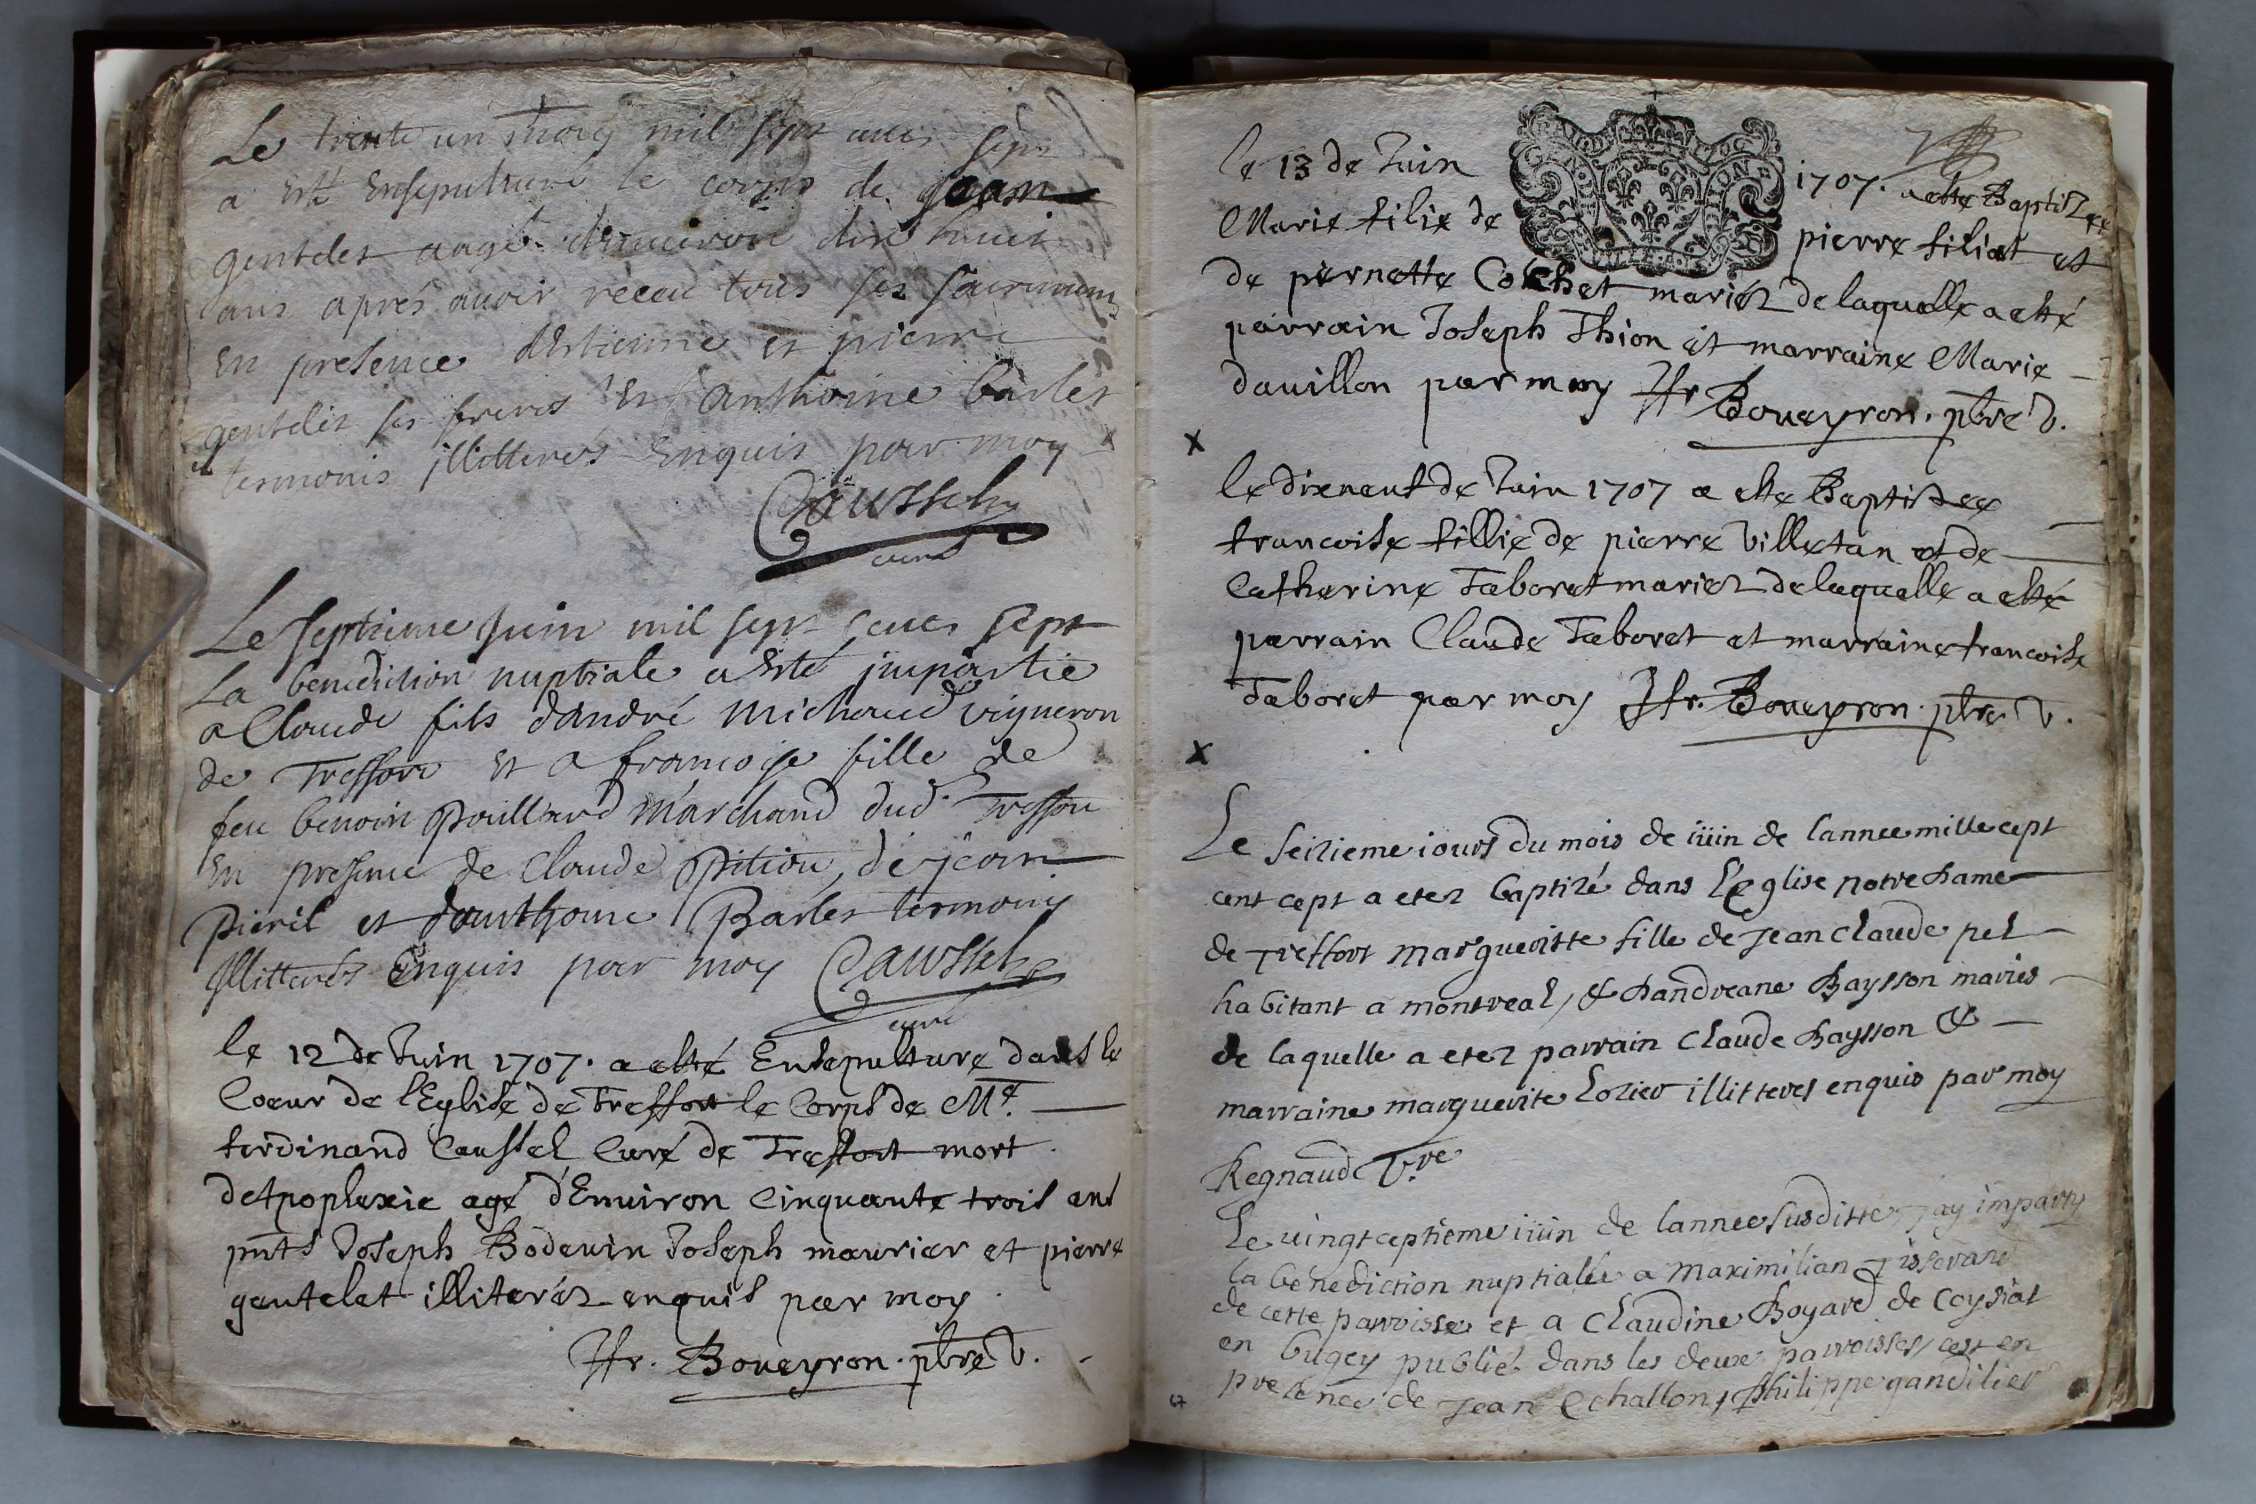 Le trente un may mil sept cens sept
a esté ensepulturé le corps de jean
gentelet aagé denuiron dix huict
ans apres auoir receu tous ses sacremens
en presence destienne et pierre
gentelet ses freres et anthoine barlet
tesmoins illitterés enquis par moy
Caussel
curé
Le septieme juin mil sept cens sept
La benediction nuptiale a esté jmpartie
a Claude fils dandré michaud vigneron
de Treffort et a francoise fille de
feu benoit Poulliard marchand dud. Treffort
en presence de Claude Pitiou, de jean
Pieril et danthoine Barlet tesmoins
jllitterés enquis par moy Caussel
curé
le 12 de Juin 1707. a esté Ensepulture dans le
Coeur de l'Eglise de Treffort le Corps de Mr.
ferdinand Caussel Curé de Treffort mort
d'Apoplexie agé d'Enuiron Cinquante trois ans
pnts Joseph Bodeuin Joseph maurier et pierre
gentelet illiterés enquis par moy
Fr. Boueyron. pbre V.
le 13 de Juin 1707. a esté Baptizée
Marie filie de pierre filiat et
de pernette Cochet mariez de laquelle a esté
parrain Joseph Thion et marraine Marie
dauillon par moy Fr. Boueyron. pbre V.
x
le dixneuf de Juin 1707 a esté Baptisee
francoise fillie de pierre Villetan et de
Catherine Taboret mariez de laquelle a esté
parrain Claude Taboret et marraine francoise
Taboret par moy Fr. Boueyron. pbre V.
x
Le seizieme iours du mois de iüin de lannee mille cept
cent cept a etez baptizé dans L'eglise notre dame
de Treffort margueritte fille de jean claude pel
habitant a montreal, & dandreane Baysson maries
de laquelle a etez parrain claude baysson &
marraine marguerite Lozier illitteres enquis par moy
Regnaud V.re
Le uingt ceptieme iüin de lannee susditte jay imparty
la bénediction nuptialle a maximilian Tisserand
de cette parroisse et a claudine Boyard de Coysiat
en bugey publié dans les deux parroisses cest en
presence de jean Echallon, philippe gandilier
67